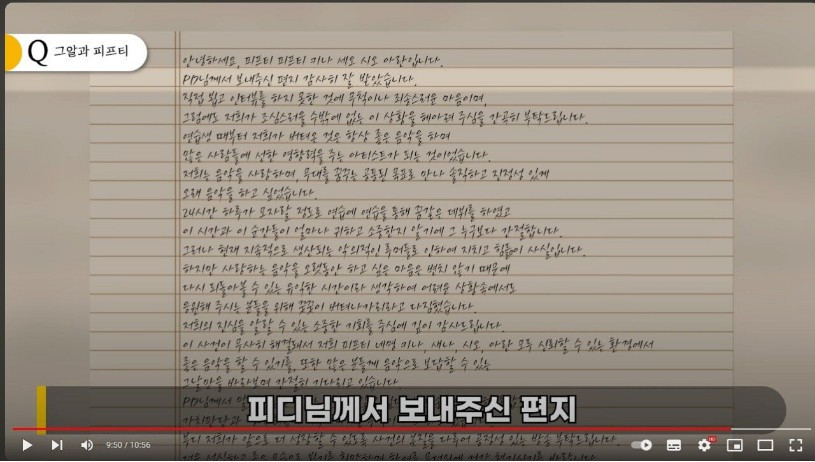 Q 그알과 피프티
안녕하세요, 피프티 피프티 키나 새나 시오 아란입니다.
PD님께서 보내주신 편지 감사히 잘 받았습니다.
직접 뵙고 인터뷰를 하지 못한 것에 무척이나 죄송스러운 마음이며,
그럼에도 저희가 조심스러울 수밖에 없는 이 상황을 헤아려 주심을 간곡히 부탁드립니다.
연습생 때부터 저희가 버텨온 것은 항상 좋은 음악을 하며
많은 사람들에 선한 영향력을 주는 아티스트가 되는 것이었습니다.
저희는 음악을 사랑하며, 무대를 꿈꾸는 공통된 목표로 만나 솔직하고 진정성 있게
오래 음악을 하고 싶었습니다.
24시간 하루가 모자랄 정도로 연습에 연습을 통해 꿈같은 데뷔를 하였고
이 시간과 이 순간들이 얼마나 귀하고 소중한지 알기에 그 누구보다 간절합니다.
그러나 현재 지속적으로 생산되는 악의적인 루머들로 인하여 지치고 힘듦이 사실입니다.
하지만 사랑하는 음악을 오랫동안 하고 싶은 마음은 변치 않기 때문에
다시 되돌아볼 수 있는 유익한 시간이라 생각하여 어려운 상황속에서도
응원해 주시는 분들을 위해 꿋꿋이 버텨나가리라고 다짐했습니다.
저희의 진심을 알릴 수 있는 소중한 기회를 주심에 깊이 감사드립니다.
이 사건이 무사히 해결돼서 저희 피프티 네명 키나, 새나, 시오, 아란 모두 신뢰할 수 있는 환경에서
좋은 음악을 할 수 있기를, 또한 많은 분들께 음악으로 보답할 수 있는
그날만을 바라보며 간절히 기다리고 있습니다.
PD님께서
부디 저희가 앞으로 더 성장할 수 있도록 사건의 본질을 다루어 공정성 있는 방송 부탁드립니다.
피디님께서 보내주신 편지
9:50 / 10:56
HD